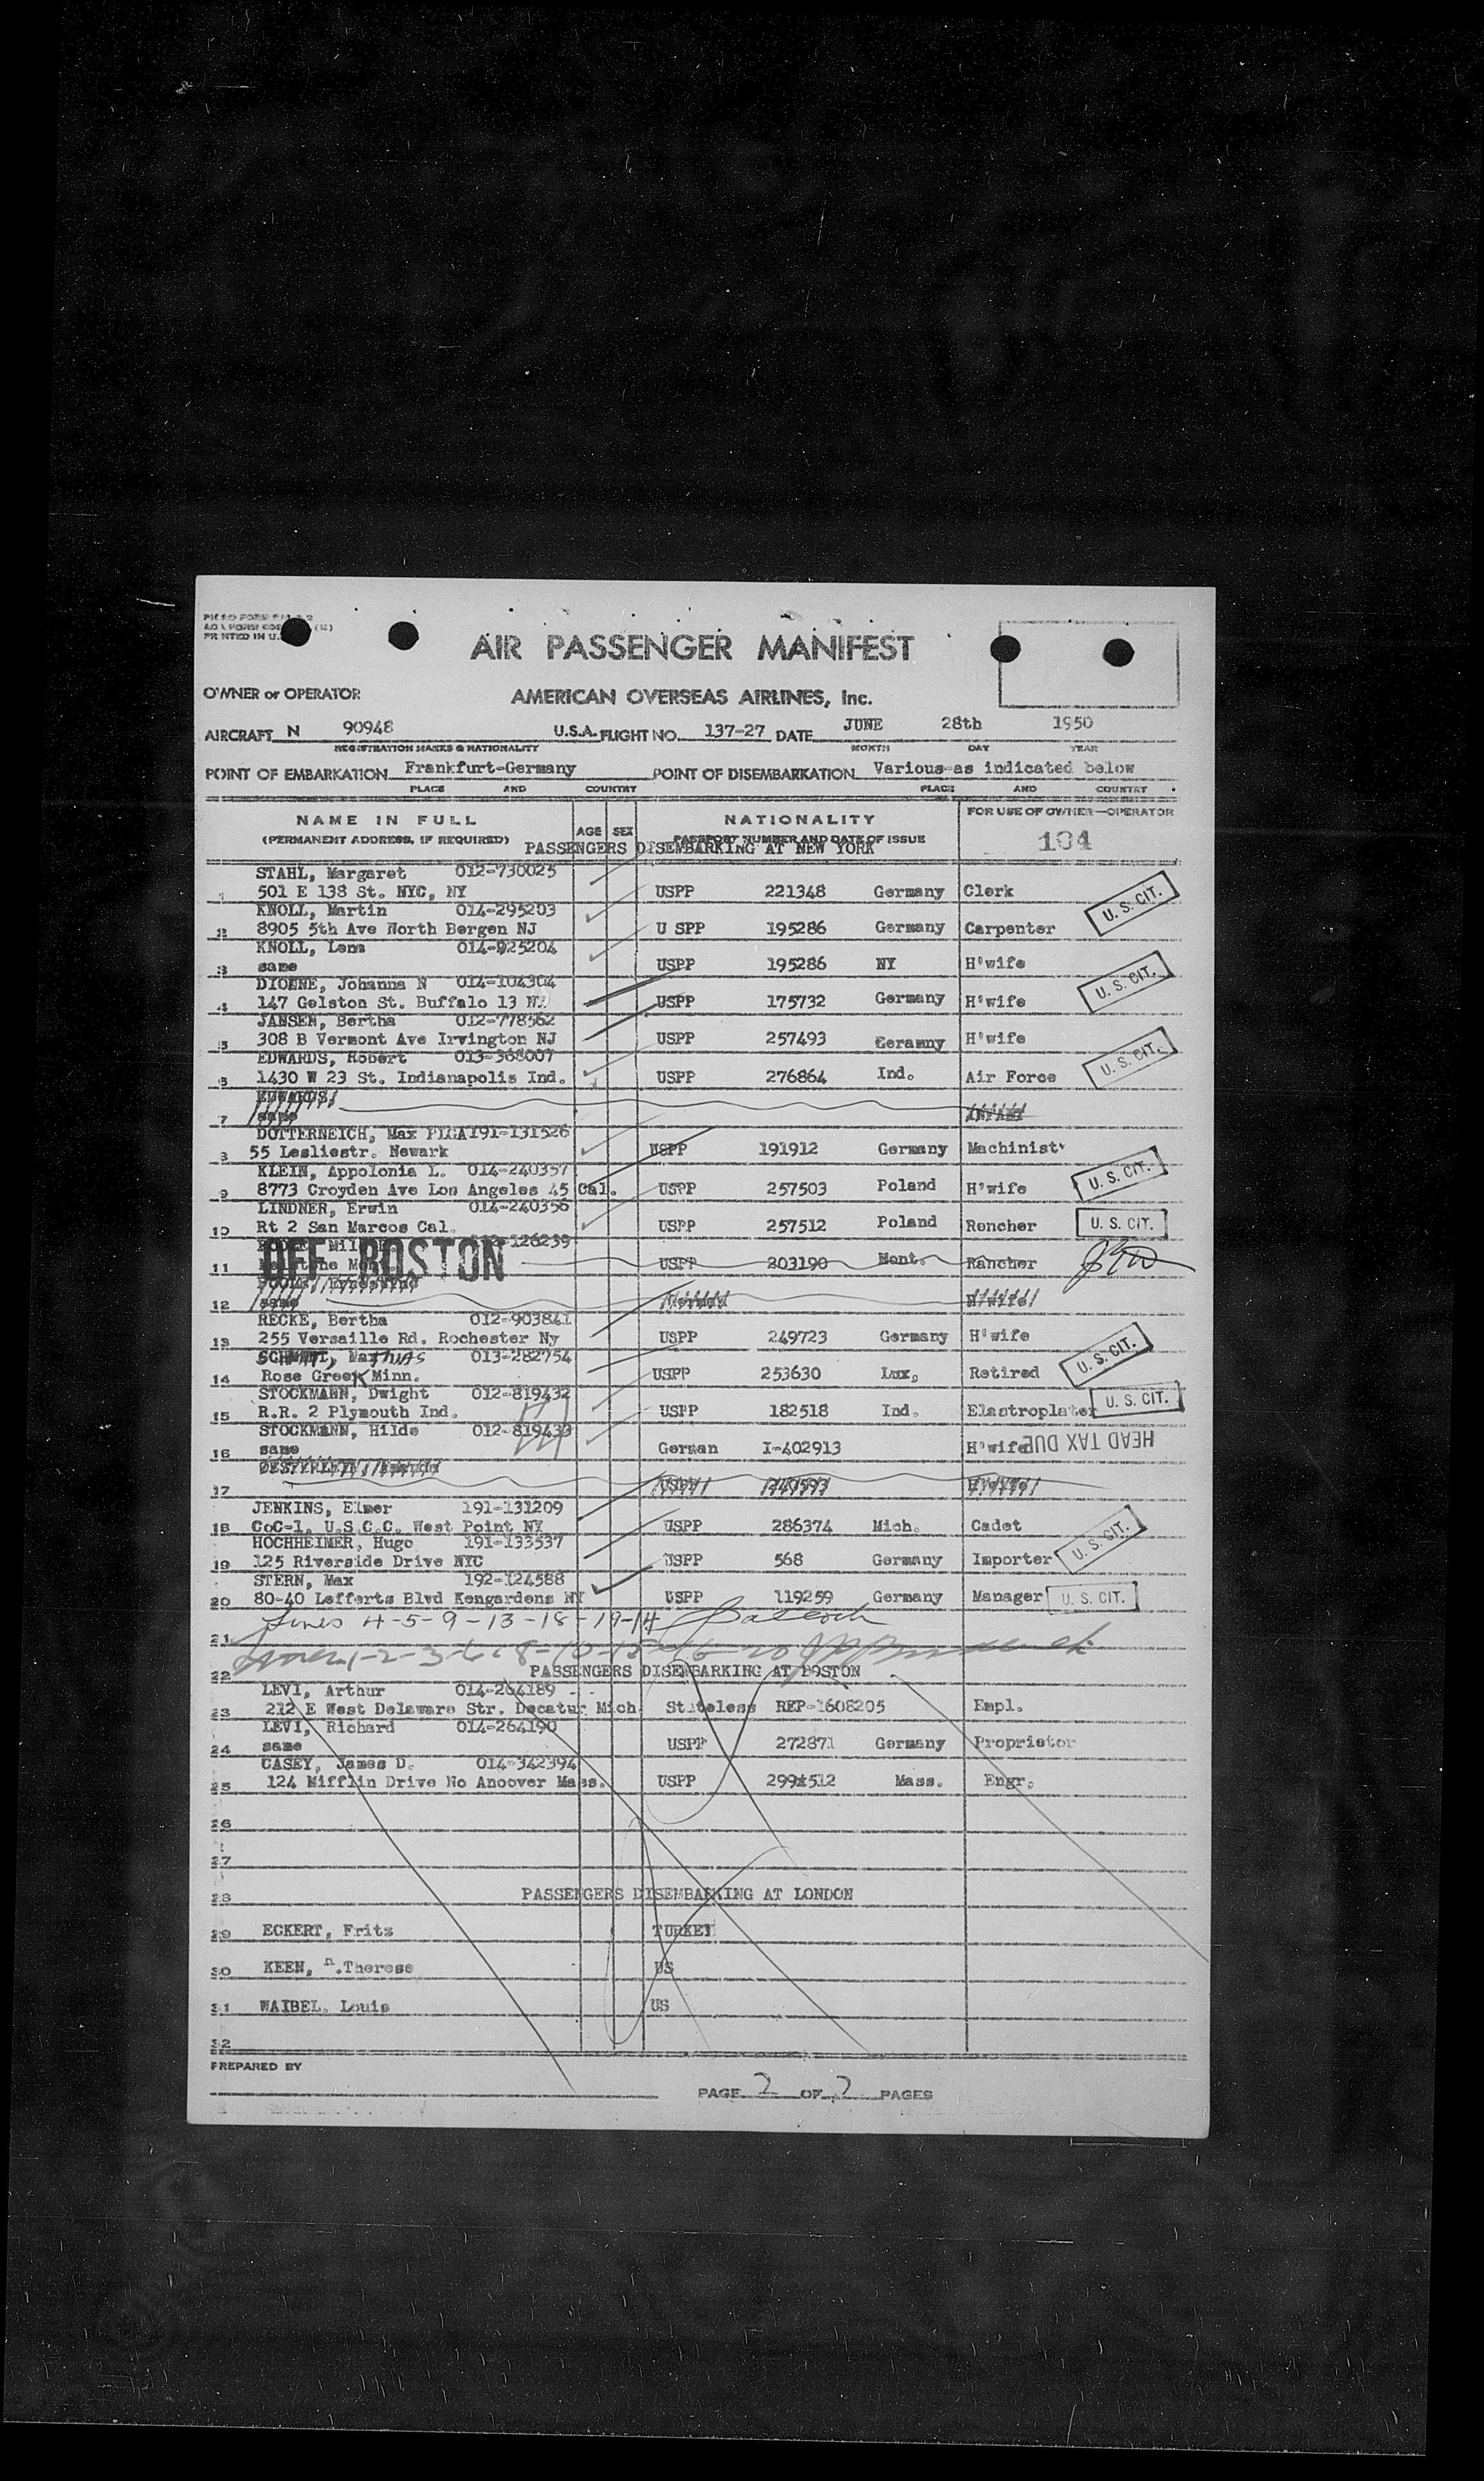 PRINTED IN U.
AIR PASSENGER MANIFEST
OWNER or OPERATOR AMERICAN OVERSEAS AIRLINES, Inc.
AIRCRAFT N 90948 U.S.A. FLIGHT NO. 137-27 DATE JUNE 28th 1950
REGISTRATION MARKS & NATIONALITY MONTH DAY YEAR
POINT OF EMBARKATION Frankfurt-Germany POINT OF DISEMBARKATION Various-as indicated below
PLACE AND COUNTRY PLACE AND COUNTRY
NAME IN FULL AGE SEX NATIONALITY FOR USE OF OWNER—OPERATOR
(PERMANENT ADDRESS, IF REQUIRED) PASSPORT NUMBER AND DATE OF ISSUE 104
PASSENGERS DISEMBARKING AT NEW YORK
STAHL, Margaret 012-730025
1 501 E 138 St. NYC, NY USPP 221348 Germany Clerk U. S. CIT.
KNOLL, Martin 014-295203
2 8905 5th Ave North Bergen NJ U SPP 195286 Germany Carpenter
KNOLL, Lena 014-925204
3 same USPP 195286 NY H'wife
DIONNE, Johanna N 014-104304 U. S. CIT.
4 147 Gelston St. Buffalo 13 USPP 175732 Germany H'wife
JANSEN, Bertha 012-778562
5 308 B Vermont Ave Irvington NJ USPP 257493 Geramny H'wife
EDWARDS, Robert 013-368007 U. S. CIT.
6 1430 W 23 St. Indianapolis Ind. USPP 276864 Ind. Air Force
EDWARDS,
7 same INFANT
DOTTERNEICH, Max 191-131526
8 55 Lesliestr. Newark USPP 191912 Germany Machinist
KLEIN, Appolonia L. 014-240357 U. S. CIT.
9 8773 Croyden Ave Los Angeles 45 Cal. USPP 257503 Poland H'wife
LINDNER, Erwin 014-240356
10 Rt 2 San Marcos Cal. USPP 257512 Poland Rencher U. S. CIT.
126239
11 OFF BOSTON USPP 203190 Mont. Rancher
12 same H'wife
RECKE, Bertha 012-903841
13 255 Versaille Rd. Rochester Ny USPP 249723 Germany H'wife
SCHMIT, Mathias 013-282754 U. S. CIT.
14 Rose Creek Minn. USPP 253630 Lux, Retired
STOCKMANN, Dwight 012-819432
15 R.R. 2 Plymouth Ind. USPP 182518 Ind. Elastroplater U. S. CIT.
STOCKMANN, Hilde 012-819433
16 same German I-402913 H'wife HEAD TAX DUE
17 USPP H'wife
JENKINS, Elmer 191-131209
18 CoC-1, U.S.C.C. West Point NY USPP 286374 Mich. Cadet
HOCHHEIMER, Hugo 191-133537 U. S. CIT.
19 125 Riverside Drive NYC USPP 568 Germany Importer
STERN, Max 192-124588
20 80-40 Lefferts Blvd Kengardens NY USPP 119259 Germany Manager U. S. CIT.
Lines 4-5-9-13-18-19-14
21
22 PASSENGERS DISEMBARKING AT BOSTON
LEVI, Arthur 014-264189
23 212 E West Delaware Str. Decatur Mich Stateless REP-1608205 Empl.
LEVI, Richard 014-264190
24 same USPP 272871 Germany Proprietor
CASEY, James D. 014-342394
25 124 Mifflin Drive No Anoover Mass. USPP 299x512 Mass. Engr.
26
27
28 PASSENGERS DISEMBARKING AT LONDON
29 ECKERT, Fritz TURKEY
30 KEEN, .Therese US
31 WAIBEL, Louis US
32
PREPARED BY
PAGE 2 OF 2 PAGES